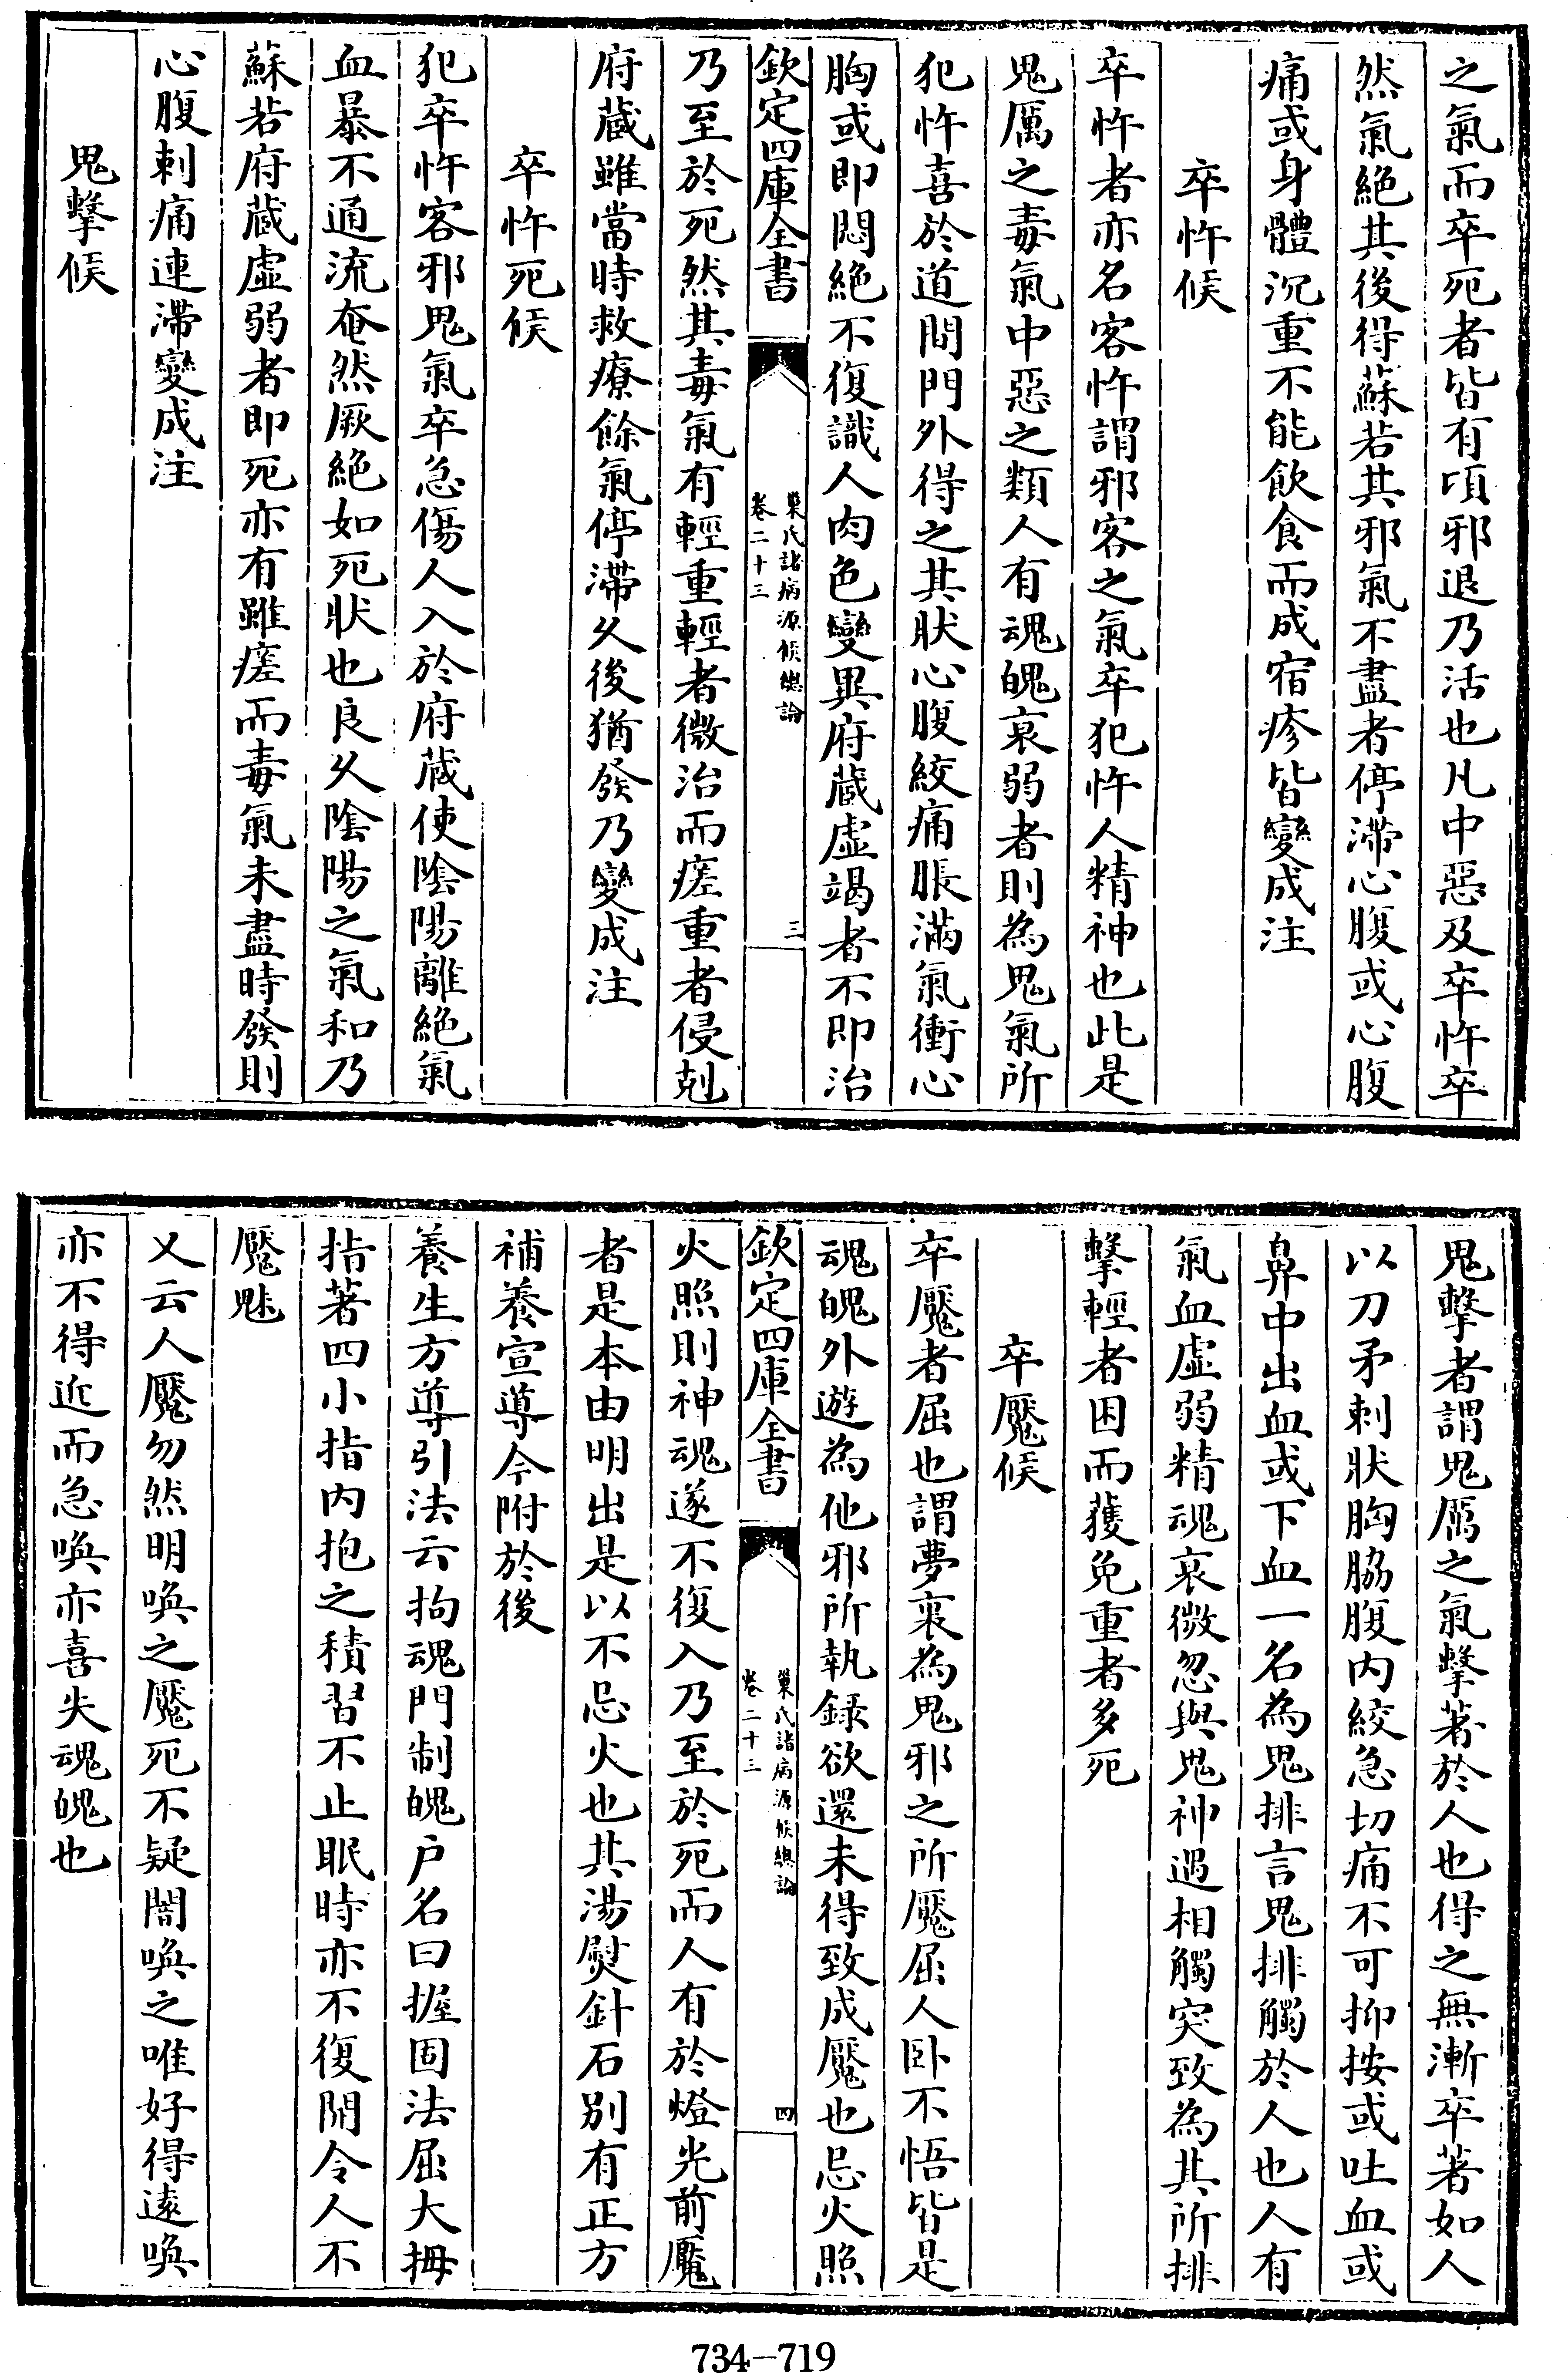 之氣而卒死者皆有頃邪退乃活也凡中惡及卒忤卒
然氣絕其後得蘇若其邪氣不盡者停滯心腹或心腹
痛或身體沉重不能飲食而成宿疹皆變成注
卒忤候
卒忤者亦名客忤謂邪客之氣卒犯忤人精神也此是
鬼厲之毒氣中惡之類人有魂魄衰弱者則為鬼氣所
犯忤喜於道間門外得之其狀心腹絞痛脹滿氣衝心
胸或即悶絕不復識人肉色變異府藏虛竭者不即治
欽定四庫全書
巢氏諸病源候總論
卷二十三
三
乃至於死然其毒氣有輕重輕者微治而瘥重者侵剋
府藏雖當時救療餘氣停滯久後猶發乃變成注
卒忤死候
犯卒忤客邪鬼氣卒急傷人入於府藏使陰陽離絕氣
血暴不通流奄然厥絕如死狀也良久陰陽之氣和乃
蘇若府藏虛弱者即死亦有雖瘥而毒氣未盡時發則
心腹刺痛連滯變成注
鬼擊候
鬼擊者謂鬼厲之氣擊著於人也得之無漸卒著如人
以刀矛刺狀胸脇腹內絞急切痛不可抑按或吐血或
鼻中出血或下血一名為鬼排言鬼排觸於人也人有
氣血虛弱精魂衰微忽與鬼神遇相觸突致為其所排
擊輕者困而獲免重者多死
卒魘候
卒魘者屈也謂夢裏為鬼邪之所魘屈人卧不悟皆是
魂魄外遊為他邪所執録欲還未得致成魘也忌火照
欽定四庫全書
巢氏諸病源候總論
卷二十三
四
火照則神魂遂不復入乃至於死而人有於燈光前魘
者是本由明出是以不忌火也其湯熨針石別有正方
補養宣導今附於後
養生方導引法云拘魂門制魄户名曰握固法屈大拇
指著四小指內抱之積習不止眠時亦不復開令人不
魘魅
又云人魘勿然明喚之魘死不疑闇喚之唯好得遠喚
亦不得近而急喚亦喜失魂魄也
734-719